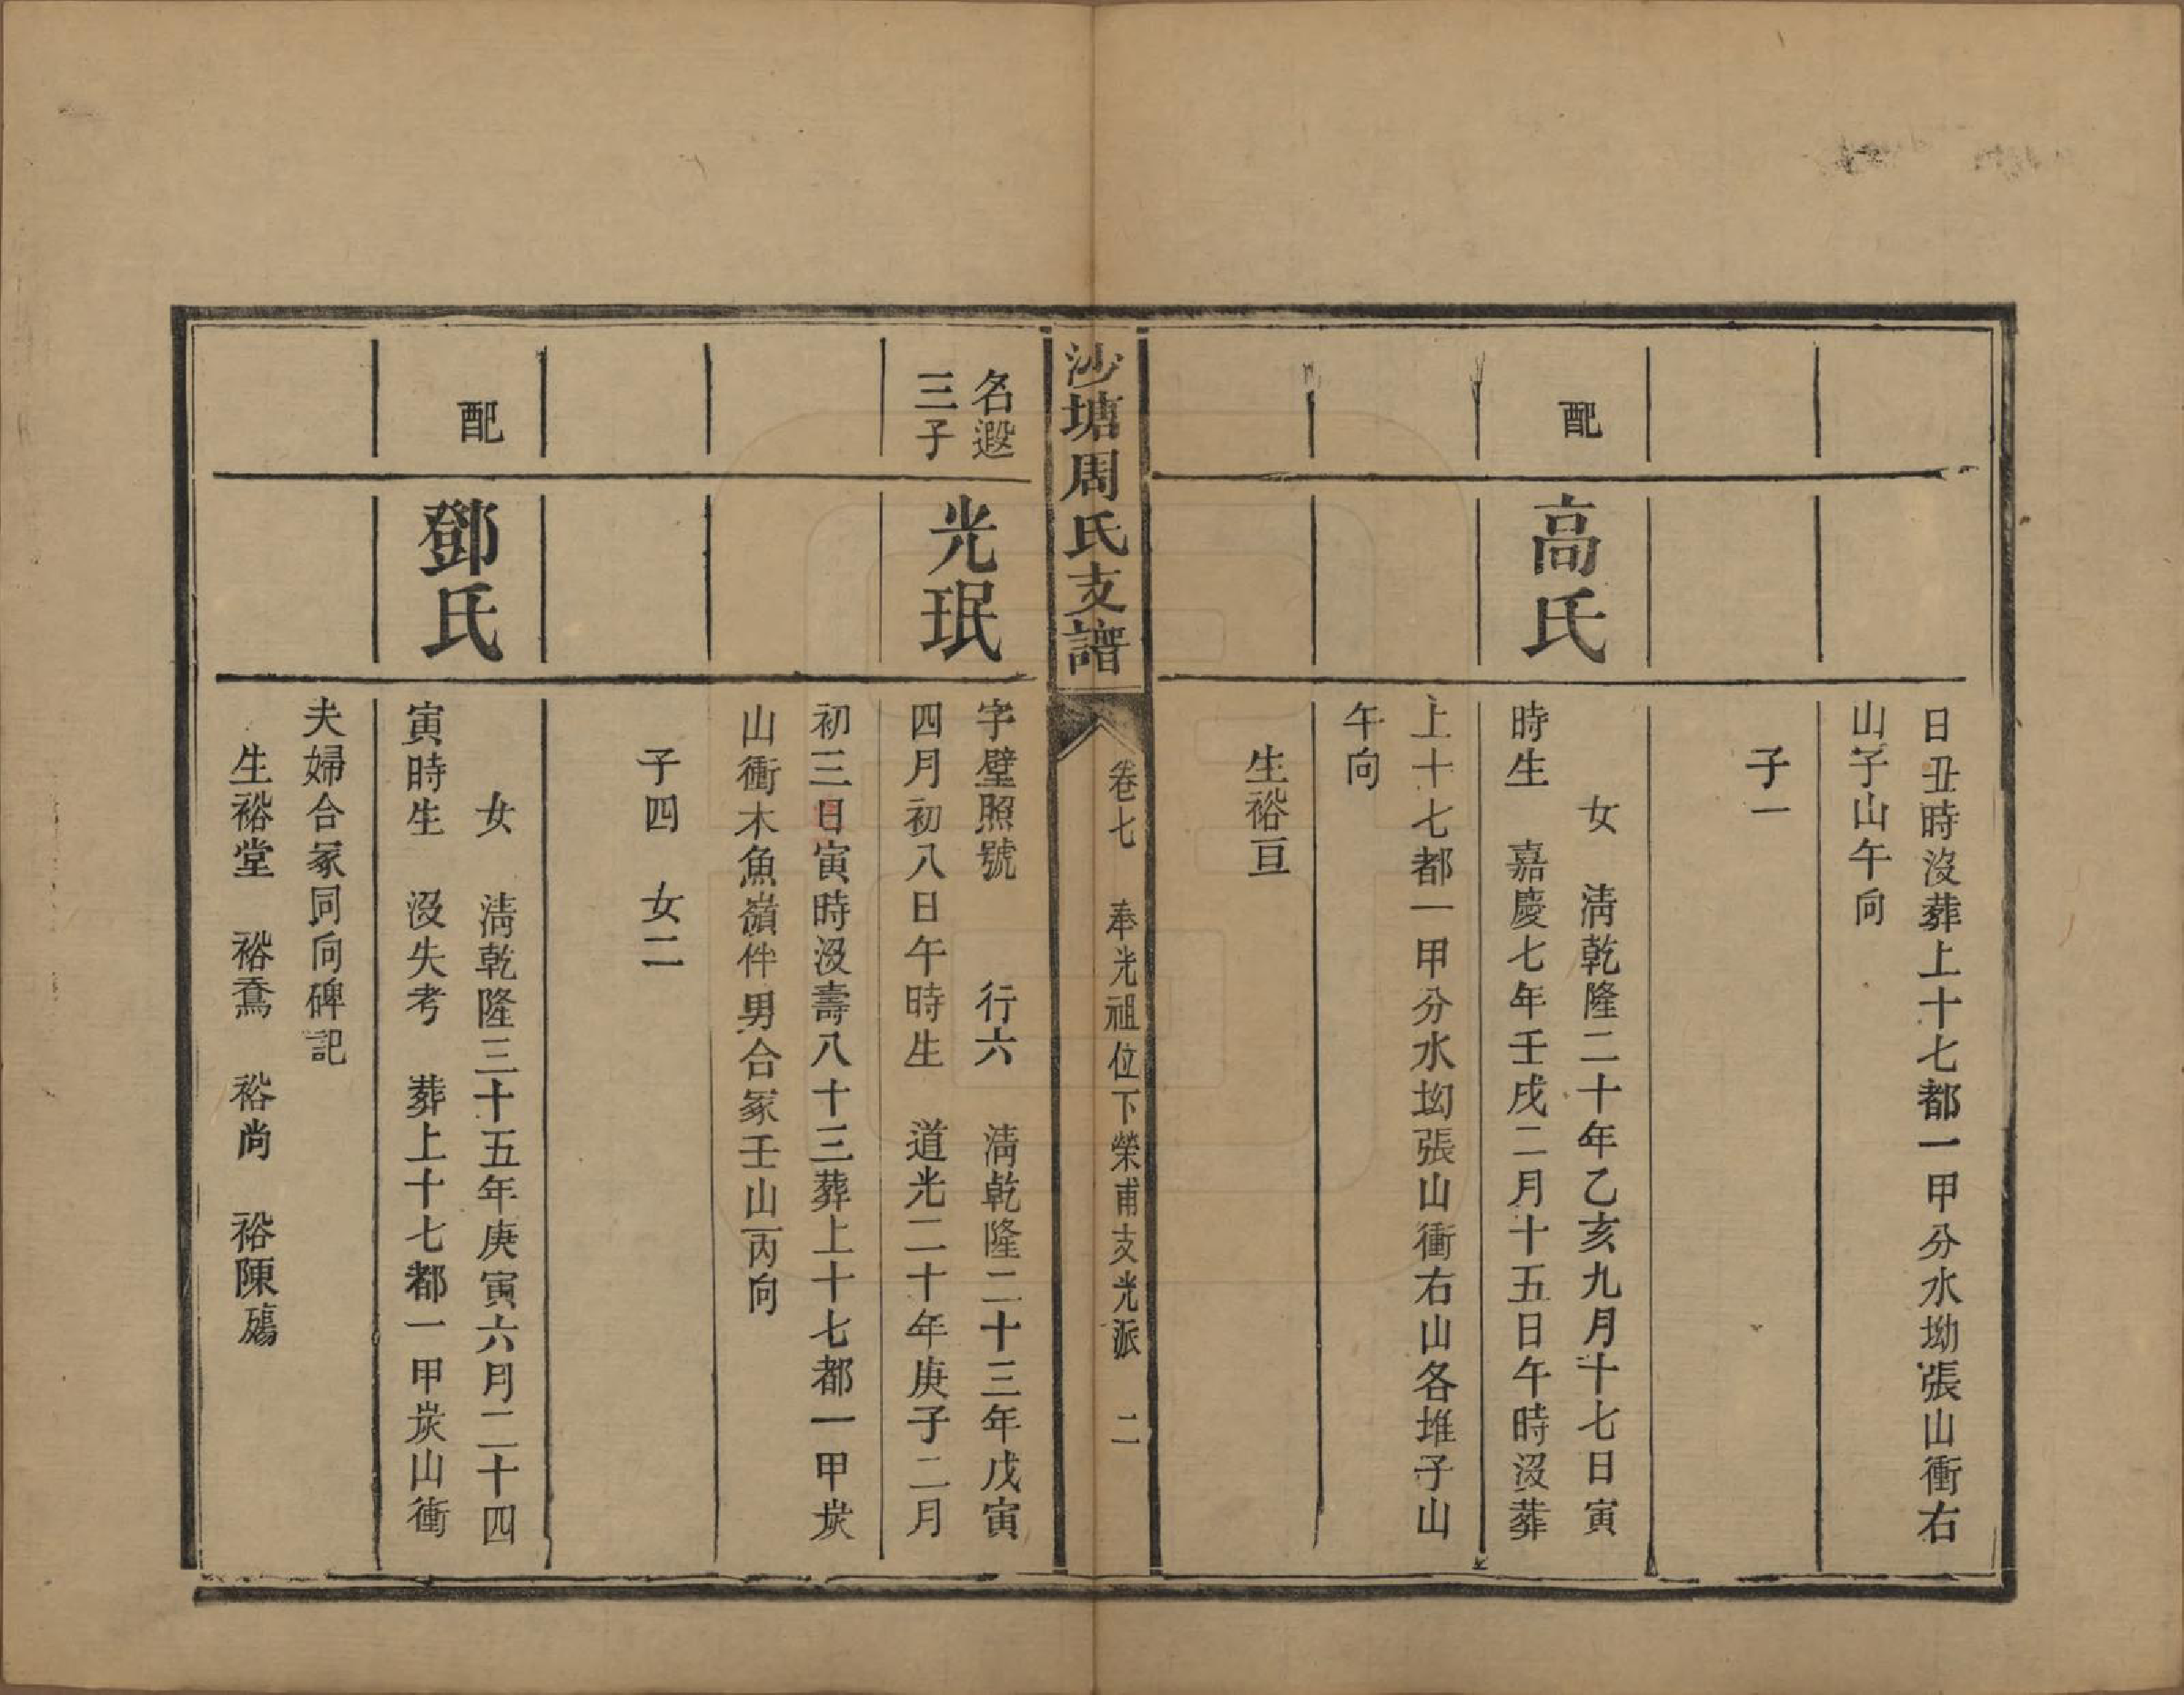 日丑時沒葬上十七都一甲分水坳張山衝右
山子山午向
子一
配
高氏
女　淸乾隆二十年乙亥九月十七日寅
時生　嘉慶七年壬戌二月十五日午時沒葬
上十七都一甲分水坳張山衝右山各堆子山
午向
生裕亘
沙塘周氏支譜
卷七　奉光祖位下榮甫支光派　二
名遐
三子
光珉
字壁照號　行六　淸乾隆二十三年戊寅
四月初八日午時生　道光二十年庚子二月
初三日寅時沒壽八十三葬上十七都一甲炭
山衝木魚嶺伴男合冢壬山丙向
子四　女二
配
鄧氏
女　淸乾隆三十五年庚寅六月二十四
寅時生　沒失考　葬上十七都一甲炭山衝
夫婦合冢同向碑記
生裕堂　裕　裕尚　裕陳殤